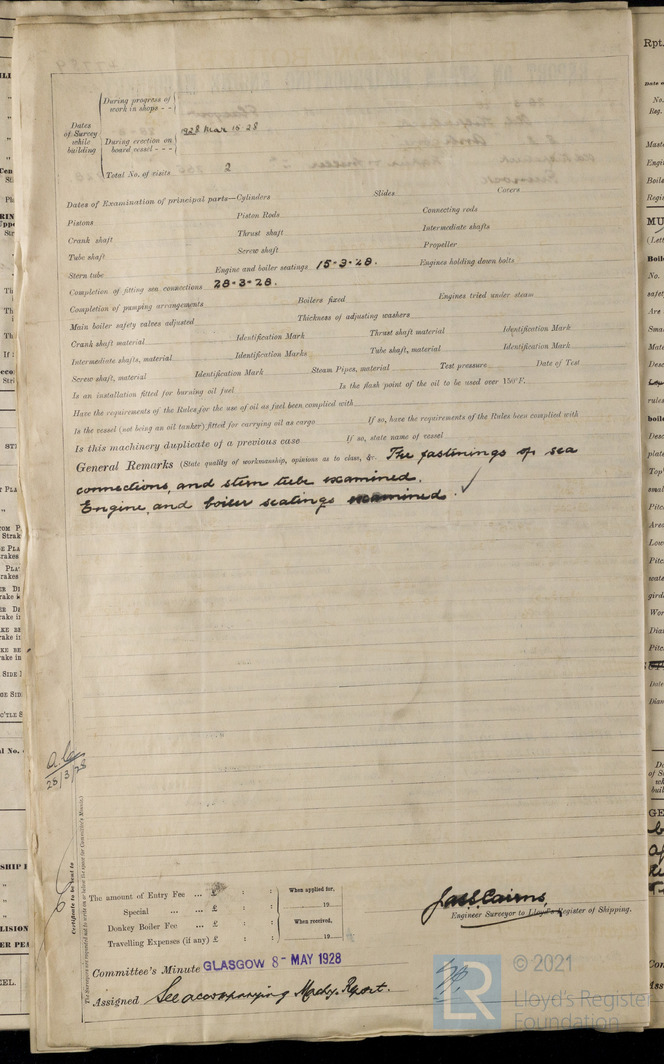 Rpt.
Dates of Survey while building
During progress of work in shops - -
1928 Mar 15-28
During erection on board vessel - - -
Total No. of visits 2
Dates of Examination of principal parts—Cylinders Slides Covers
Pistons Piston Rods Connecting rods
Crank shaft Thrust shaft Intermediate shafts
Tube shaft Screw shaft Propeller
Stern tube Engine and boiler seatings 15-3-28. Engines holding down bolts
Completion of fitting sea connections 28-3-28.
Completion of pumping arrangements Boilers fixed Engines tried under steam
Main boiler safety valves adjusted Thickness of adjusting washers
Crank shaft material Identification Mark Thrust shaft material Identification Mark
Intermediate shafts, material Identification Marks Tube shaft, material Identification Mark
Screw shaft, material Identification Mark Steam Pipes, material Test pressure Date of Test
Is an installation fitted for burning oil fuel Is the flash point of the oil to be used over 150°F.
Have the requirements of the Rules for the use of oil as fuel been complied with
Is the vessel (not being an oil tanker) fitted for carrying oil as cargo If so, have the requirements of the Rules been complied with
Is this machinery duplicate of a previous case If so, state name of vessel
General Remarks (State quality of workmanship, opinions as to class, &c. The fastenings of sea
connections, and stern tube examined.
Engine, and boiler seatings examined. ✓
28/3/28
Certificate to be sent to
The amount of Entry Fee ... £ : :
Special ... ... £ : :
Donkey Boiler Fee ... £ : :
Travelling Expenses (if any) £ : :
When applied for,
19
When received,
19
Jas S Cairns
Engineer Surveyor to Lloyd's Register of Shipping.
Committee's Minute GLASGOW 8- MAY 1928
Assigned See accompanying Machy. Report.
LR
© 2021
Lloyd's Register
Foundation